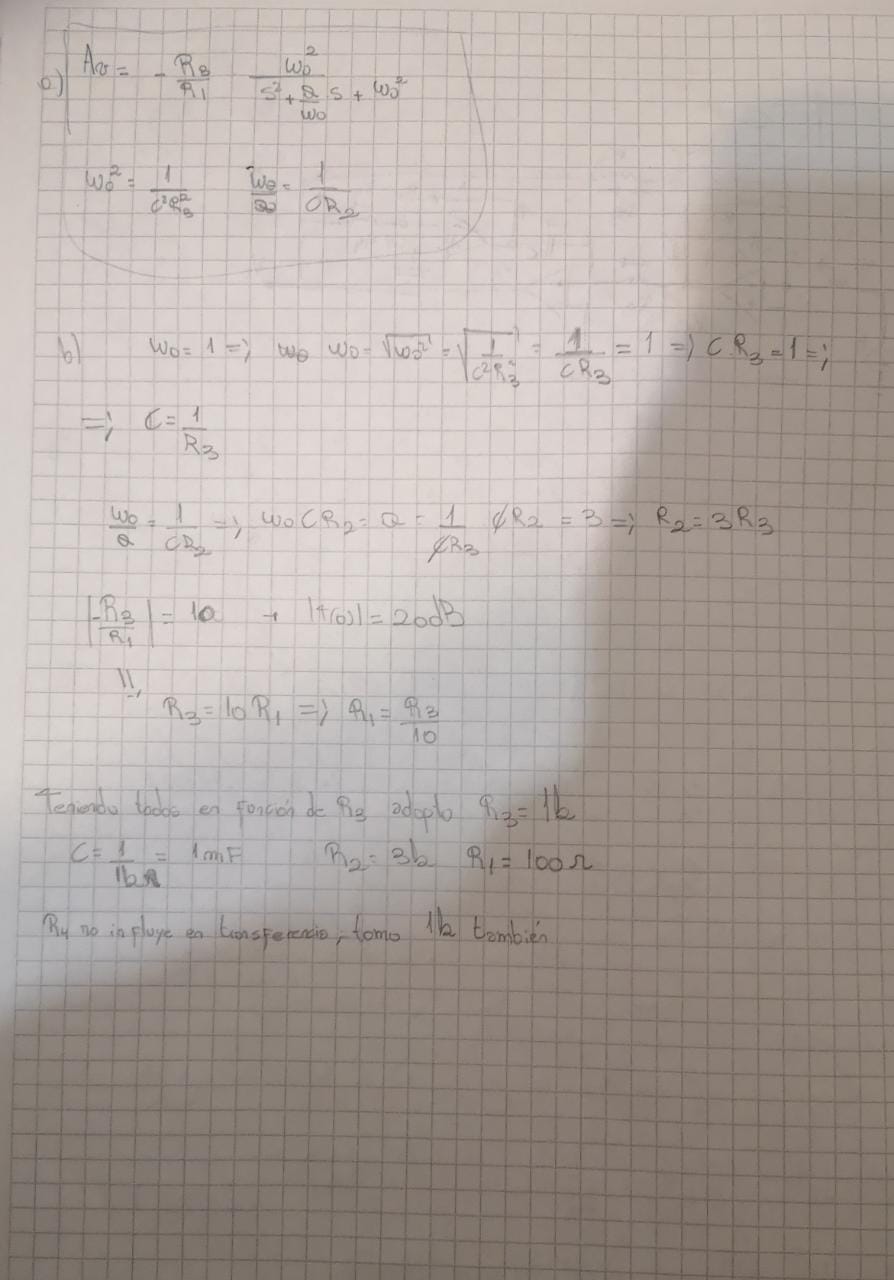 a) Av = - R3/R1 ω0²/(s² + Q/ω0 s + ω0²)
ω0² = 1/(C²R3²) ω0/Q = 1/(CR2)
b) ω0 = 1 => ω0 ω0 = √ω0² = √(1/(C²R3²)) = 1/(CR3) = 1 => C R3 = 1 =>
=> C = 1/R3
ω0/Q = 1/(CR2) => ω0 CR2 = Q = 1/(CR3) CR2 = 3 => R2 = 3R3
|-R3/R1| = 10 → |T(0)| = 20dB
R3 = 10 R1 => R1 = R3/10
Teniendo todos en función de R3 adopto R3 = 1k
C = 1/1kΩ = 1mF R2 = 3k R1 = 100Ω
R4 no influye en transferencia, tomo 1k también